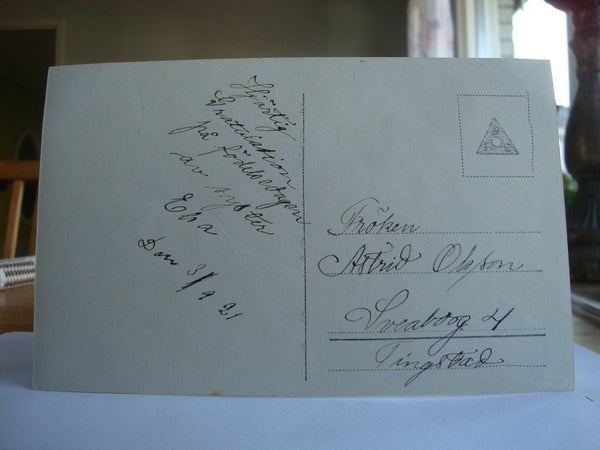 Hjärtlig
Gratulation
på födelsedagen
av syster
Elsa
Den 3/9 21
Fröken
Astrid Olsson
Sveaborg 4
Tingstad